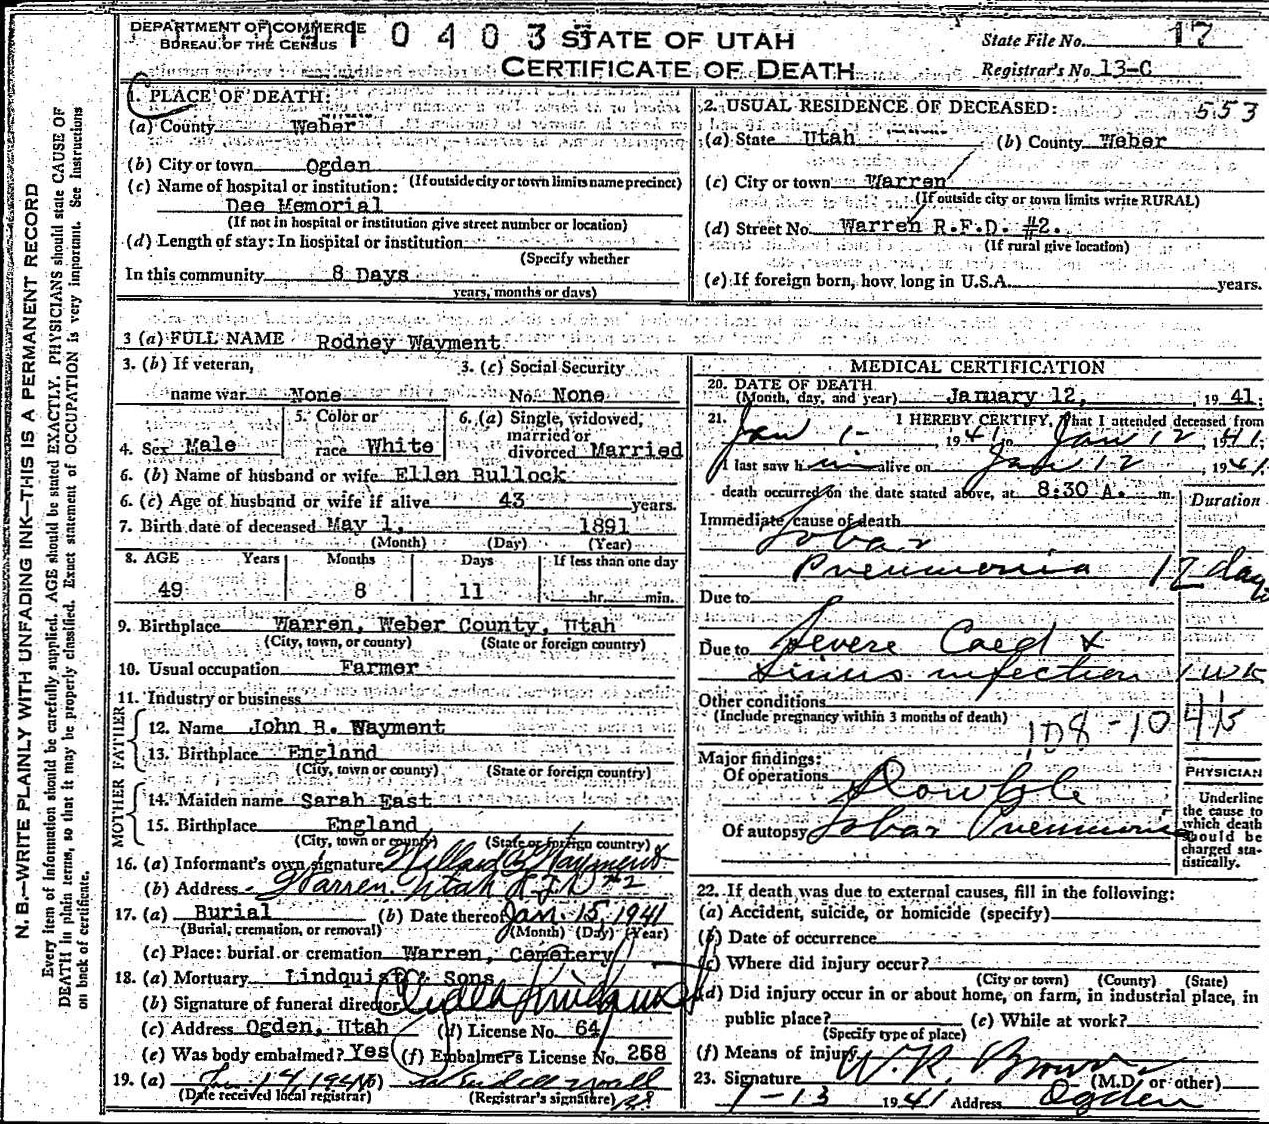 DEPARTMENT OF COMMERCE
BUREAU OF THE CENSUS
1 0 4 0 3 3
STATE OF UTAH
CERTIFICATE OF DEATH
State File No. 17
Registrar's No. 13-C
553
N. B.—WRITE PLAINLY WITH UNFADING INK—THIS IS A PERMANENT RECORD
Every item of information should be carefully supplied. AGE should be stated EXACTLY. PHYSICIANS should state CAUSE OF
DEATH in plain terms, so that it may be properly classified. Exact statement of OCCUPATION is very important. See Instructions
on back of certificate.
1. PLACE OF DEATH:
(a) County Weber
(b) City or town Ogden
(If outside city or town limits name precinct)
(c) Name of hospital or institution:
Dee Memorial
(If not in hospital or institution give street number or location)
(d) Length of stay: In hospital or institution
(Specify whether
In this community 8 Days
years, months or days)
2. USUAL RESIDENCE OF DECEASED:
(a) State Utah (b) County Weber
(c) City or town Warren
(If outside city or town limits write RURAL)
(d) Street No. Warren R.F.D. #2.
(If rural give location)
(e) If foreign born, how long in U.S.A. years.
3 (a) FULL NAME Rodney Wayment
3. (b) If veteran,
name war None
3. (c) Social Security
No. None
4. Sex Male
5. Color or
race White
6. (a) Single, widowed,
married or
divorced Married
6. (b) Name of husband or wife Ellen Bullock
6. (c) Age of husband or wife if alive 43 years.
7. Birth date of deceased May 1, 1891
(Month) (Day) (Year)
8. AGE Years Months Days If less than one day
49 8 11 hr. min.
9. Birthplace Warren, Weber County, Utah
(City, town, or county) (State or foreign country)
10. Usual occupation Farmer
11. Industry or business
FATHER
12. Name John B. Wayment
13. Birthplace England
(City, town or county) (State or foreign country)
MOTHER
14. Maiden name Sarah East
15. Birthplace England
(City, town or county) (State or foreign country)
16. (a) Informant's own signature Willard B Wayment
(b) Address Warren Utah R.F.D #2
17. (a) Burial (b) Date thereof Jan. 15, 1941
(Burial, cremation, or removal) (Month) (Day) (Year)
(c) Place: burial or cremation Warren, Cemetery
18. (a) Mortuary Lindquist & Sons
(b) Signature of funeral director
(c) Address Ogden, Utah (d) License No. 64
(e) Was body embalmed? Yes (f) Embalmer's License No. 268
19. (a) Jan 14 1941 (b)
(Date received local registrar) (Registrar's signature)
MEDICAL CERTIFICATION
20. DATE OF DEATH
(Month, day, and year) January 12, 1941.
21. I HEREBY CERTIFY, That I attended deceased from
Jan 1- 1941 to Jan 12 1941;
I last saw him alive on Jan 12, 1941
death occurred on the date stated above, at 8:30 A. m.
Duration
Immediate cause of death
Lobar
Pneumonia 12 days
Due to
Due to Severe Cold &
Sinus infection 1 wk
Other conditions
(Include pregnancy within 3 months of death)
108-10
Major findings:
Of operations Double
Of autopsy Lobar Pneumonia
PHYSICIAN
Underline
the cause to
which death
should be
charged sta-
tistically.
22. If death was due to external causes, fill in the following:
(a) Accident, suicide, or homicide (specify)
(b) Date of occurrence
(c) Where did injury occur?
(City or town) (County) (State)
(d) Did injury occur in or about home, on farm, in industrial place, in
public place? (e) While at work?
(Specify type of place)
(f) Means of injury
23. Signature W. R. Brown (M.D. or other)
1-13 1941 Address Ogden